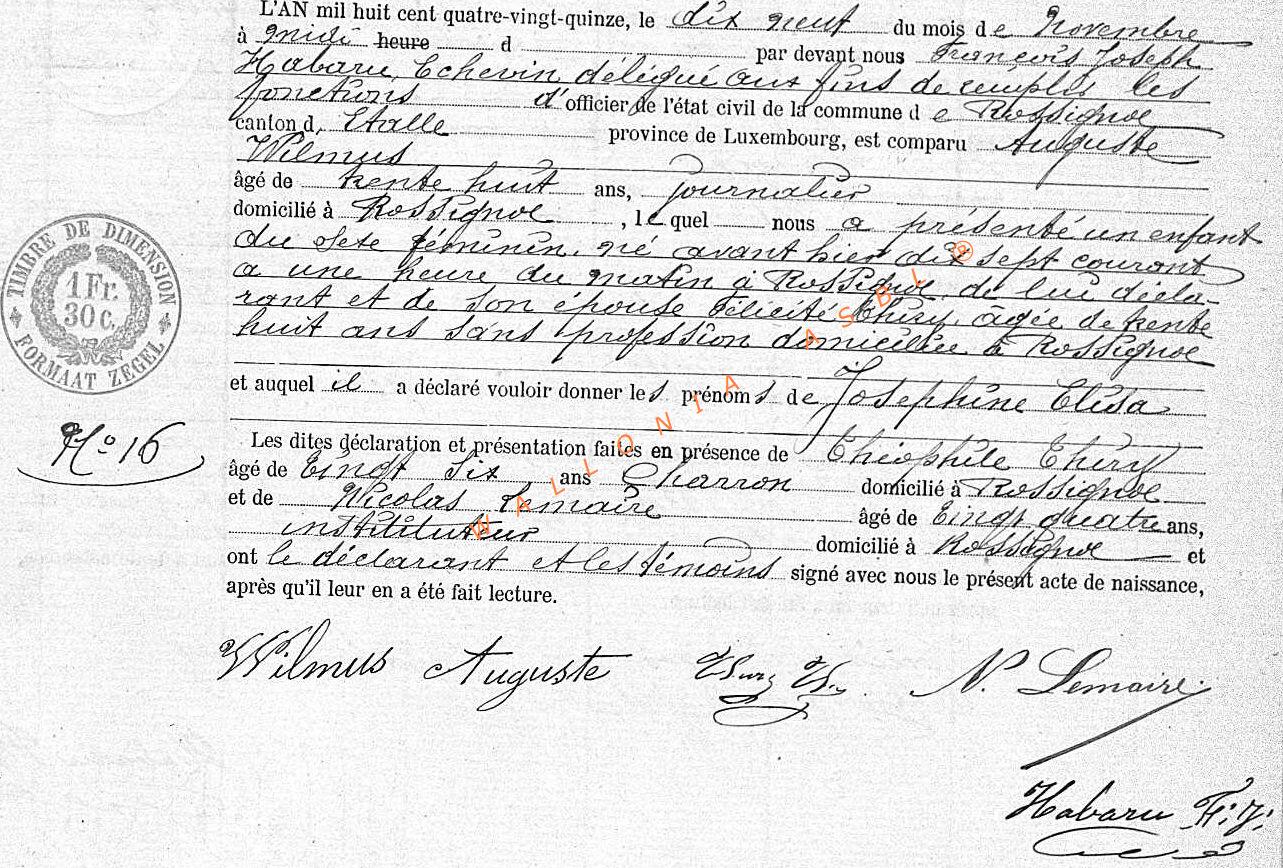 L'AN mil huit cent quatre-vingt-quinze, le dix neuf du mois de Novembre
à midi heure d par devant nous François Joseph
Habaru, Echevin délégué aux fins de remplir les
fonctions d'officier de l'état civil de la commune de Rossignol
canton d, Etalle province de Luxembourg, est comparu Auguste
Wilmus
âgé de trente huit ans, journalier
domicilié à Rossignol, lequel nous a présenté un enfant
du sexe féminin, né avant hier dix sept courant
a une heure du matin à Rossignol, de lui décla-
rant et de son épouse Félicité Thiry, âgée de trente
huit ans sans profession domiciliée à Rossignol
et auquel il a déclaré vouloir donner les prénoms de Josephine Elisa
Les dites déclaration et présentation faites en présence de Théophile Thiry
âgé de vingt six ans Charron domicilié à Rossignol
et de Nicolas Lemaire âgé de vingt quatre ans,
instituteur domicilié à Rossignol et
ont le déclarant et les témoins signé avec nous le présent acte de naissance,
après qu'il leur en a été fait lecture.
TIMBRE DE DIMENSION
1 Fr.
30 c.
FORMAAT ZEGEL
No 16
WALLONIA ASBL ®
Wilmus Auguste
N. Lemaire
Habaru F. J.